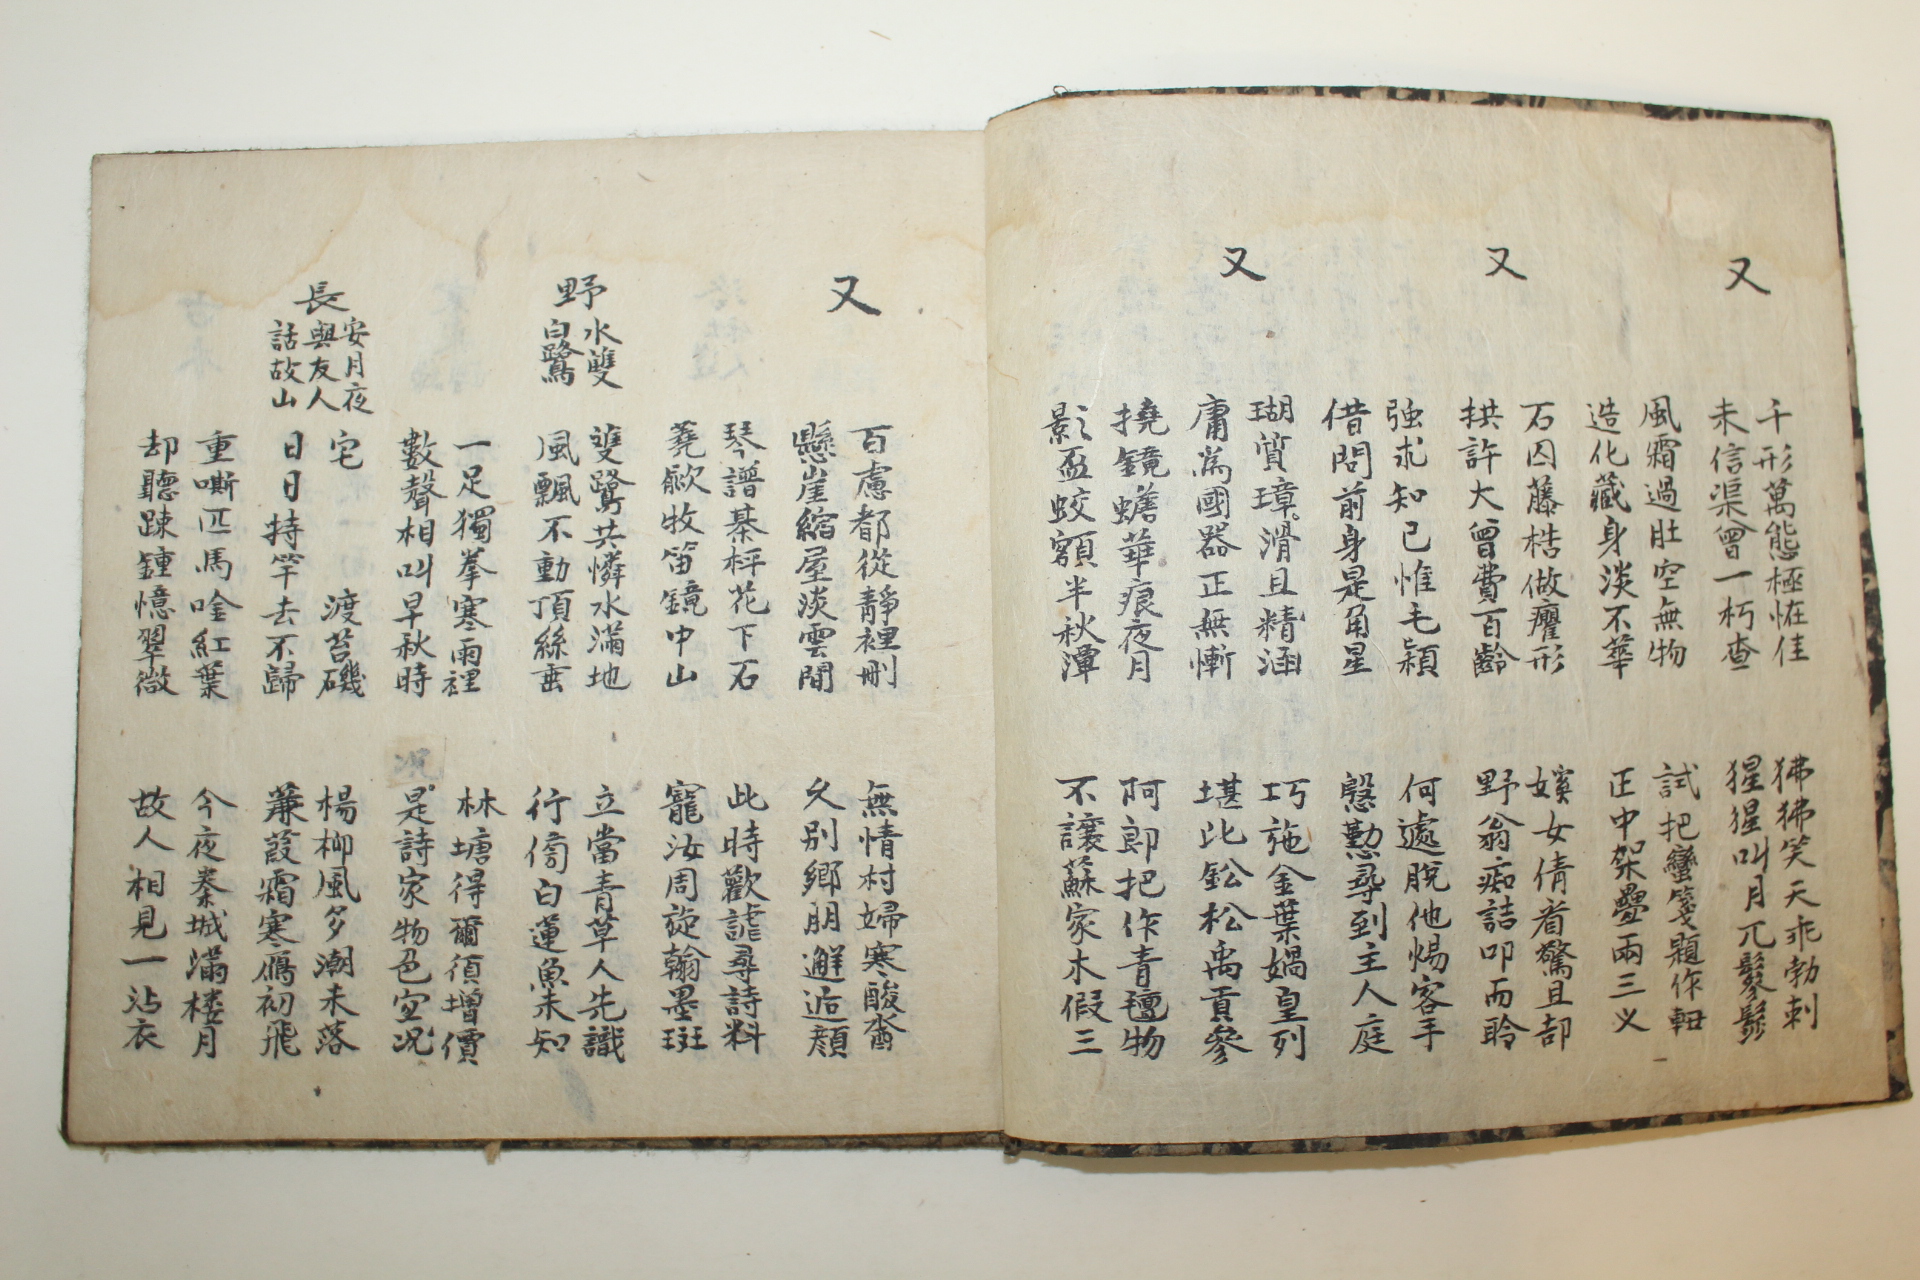 又
千形萬態極恠佳
狒狒笑天乖勃剌
未信渠曾一朽查
猩猩叫月兀鬖髿
風霜過肚空無物
試把蠻箋題作
造化藏身淡不華
正中架疊兩三义
又
石囚藤梏做癯形
嬪女倩看驚且却
拱許大曾費百齡
野翁痴詰叩而聆
强求知已惟毛穎
何處脫他惕客手
借問前身是角星
慇懃尋到主人庭
又
瑚質璋滑且精涵
巧施金葉媧皇列
庸爲國器正無慚
堪比鈆松禹貢參
撓鏡蟾華痕夜月
阿郎把作青氊物
影盃蛟額半秋潭
不讓蘇家木假三
又
百慮都從靜裡刪
無情村婦寒酸
懸崖縮屋淡雲間
久別鄉朋邂逅顔
琴譜棊枰花下石
此時歡謔尋詩料
蕘歈牧笛鏡中山
寵汝周旋翰墨斑
野水雙白鷺
雙鷺共憐水滿地
立當青草人先識
風飄不動頂絲垂
行傍白蓮魚未知
一足獨拳寒雨裡
林塘得爾須增價
數聲相叫早秋時
是詩家物色宜况
長安月夜與友人話故山
宅 渡苔磯
楊柳風多潮未落
日日持竿去不歸
蒹葭霜寒鴈初飛
重嘶匹馬唫紅葉
今夜秦城滿楼月
却聽踈鍾憶翠微
故人相見一沾衣